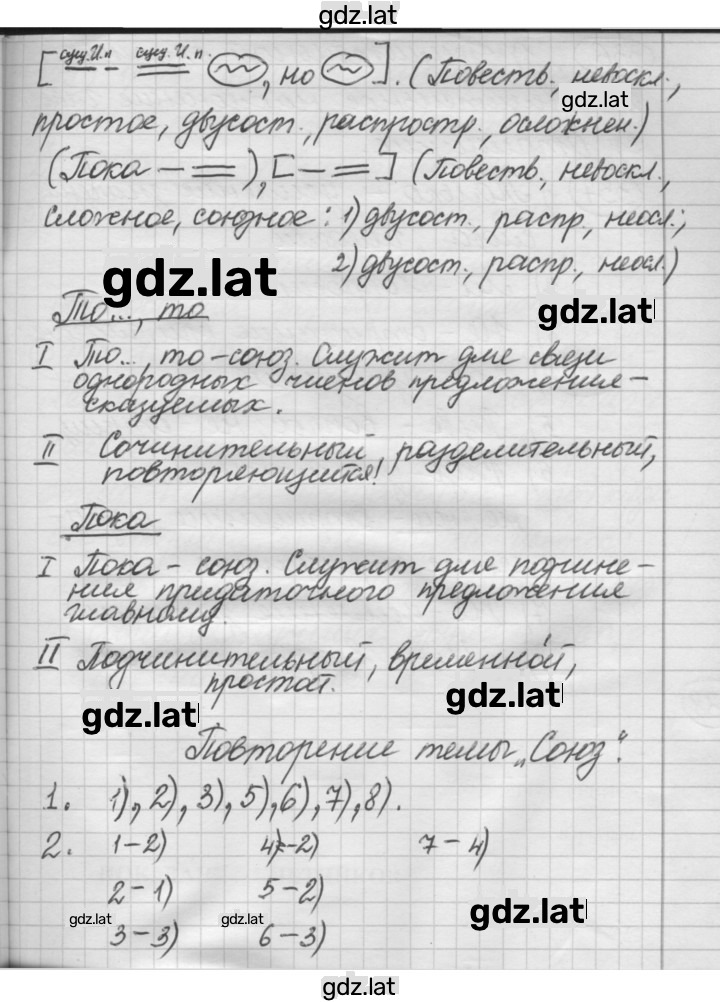 gdz.lat
[сущ.И.п сущ.И.п. , но ]. (Повесть., невоскл.,
gdz.lat
простое, двусост., распростр., осложнен.)
(Пока – = ), [ – = ] (Повесть., невоскл.,
сложное, союзное: 1) двусост., распр., неосл.;
gdz.lat
2) двусост., распр., неосл.)
То..., то
gdz.lat
I То..., то – союз. Служит для связи
однородных членов предложения –
сказуемых.
II Сочинительный, разделительный,
повторяющийся!
Пока
I Пока – союз. Служит для подчине-
ния придаточного предложения
главному.
II Подчинительный, временной,
простой.
gdz.lat
gdz.lat
Повторение темы „Союз".
1. 1), 2), 3), 5), 6), 7), 8).
2. 1–2) 4–2) 7–4)
2–1) 5–2)
gdz.lat gdz.lat gdz.lat
3–3) 6–3)
gdz.lat